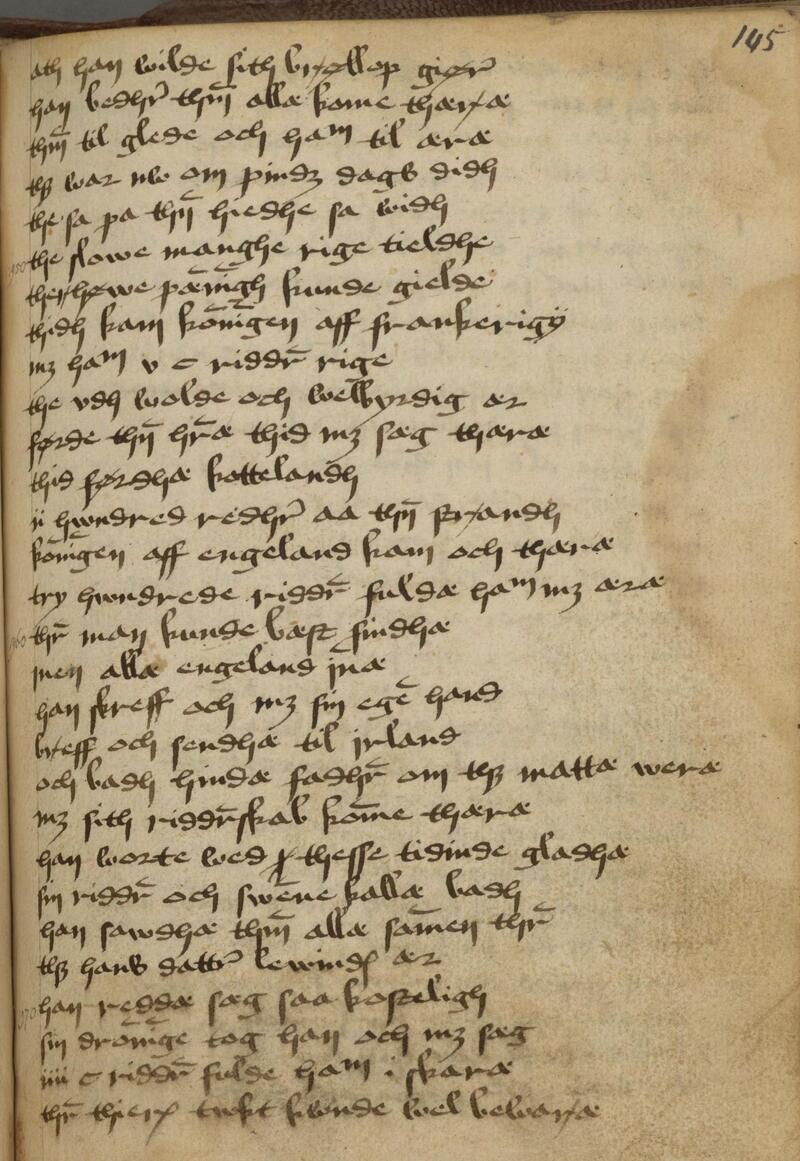 145
ath han wilde sith brøllop giør
han bedhr thm allæ kome thæræ
thm til glede och ham til æræ
thz war nw om pindz dags didh
the sa pa thn hiedhe sa widh
950 the slowe manghe rige tieldhe
ther howe pæningh kunde gielde
thidh kam koningen aff frankerigy
mz ham v c riddr rige
the vdh wolde och welbyrdig ær
førde thn hræ thid mz sæg thæræ
thid førdhæ kottelandh
ii hwndred redhr aa thn strandh
koningen aff engeland kam och thæræ
try hwndrede riddr fuldæ ham mz æræ
960 thr man kunde bæst findhæ
men allæ engeland jnæ
han skreff och mz sin egē hand
breff och sendhæ til jrland
och badh hindæ fadhr om thz mattæ weræ
mz sith riddrskab kome thæræ
han worte wed thesse tidinde gladhæ
sin riddr och swene kallæ badh
han sawdhæ thm allæ samen thr
thz hans dattr lewindes ær
970 han reddæ sæg saa kosteligh
sin droninge tog han och mz sæg
iiii c riddr fulde ham i skaræ
thr thieres tukt kwnde wel bewaræ